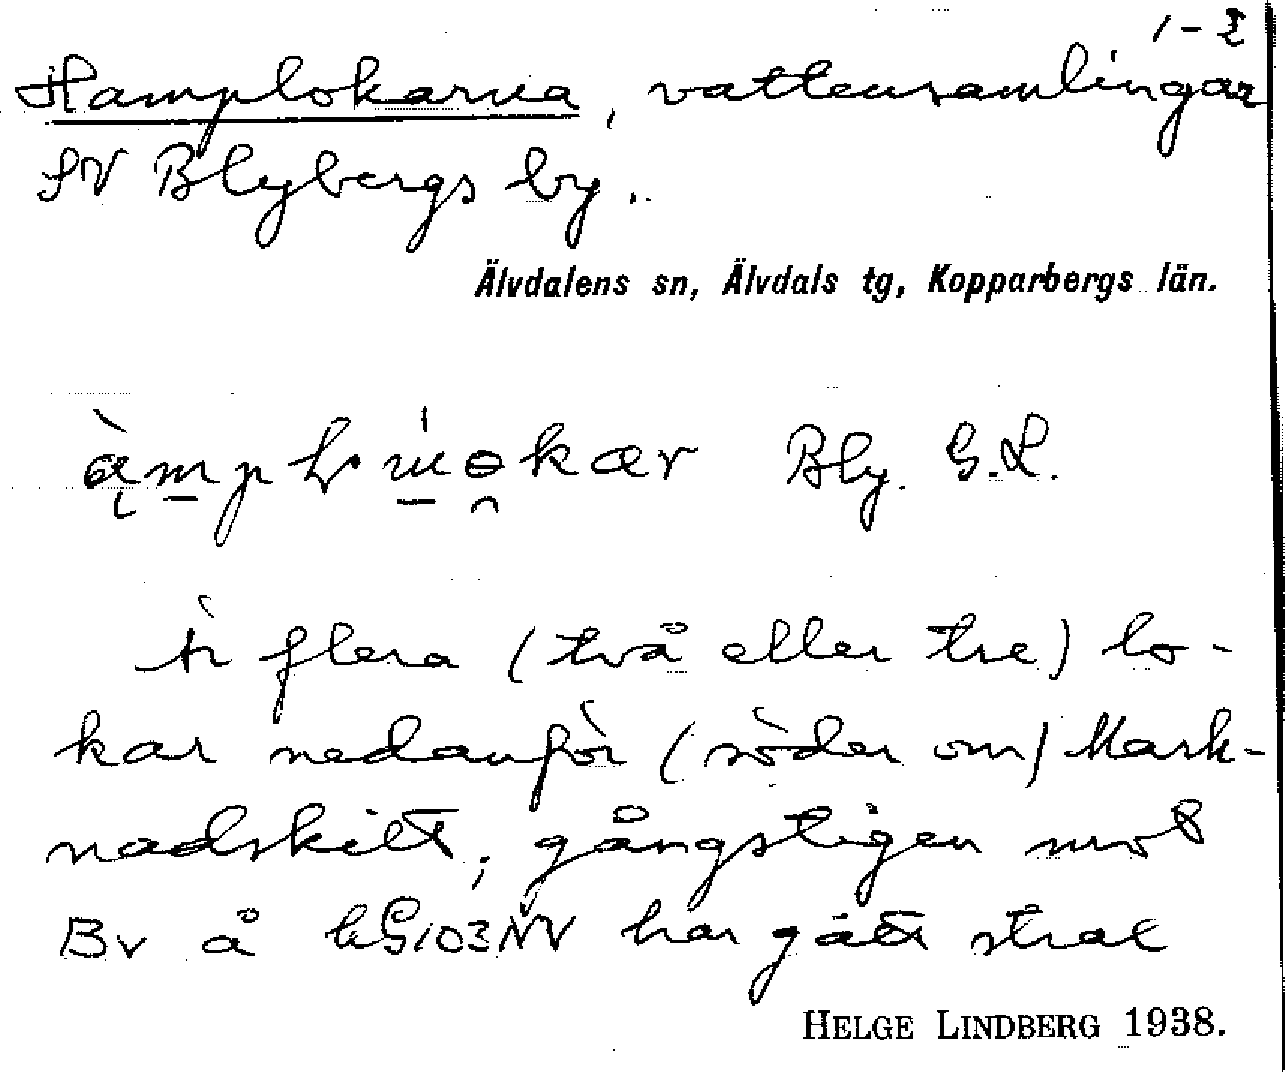 1-2
Hamplokarna, vattensamlingar
SV Blybergs by.
Älvdalens sn, Älvdals tg, Kopparbergs län.
Bly. G.L.
Är flera (två eller tre) lo-
kar nedanför (söder om) Mark-
nadskilt; gångstigen mot
Bv å 103NV har gått strax
HELGE LINDBERG 1938.